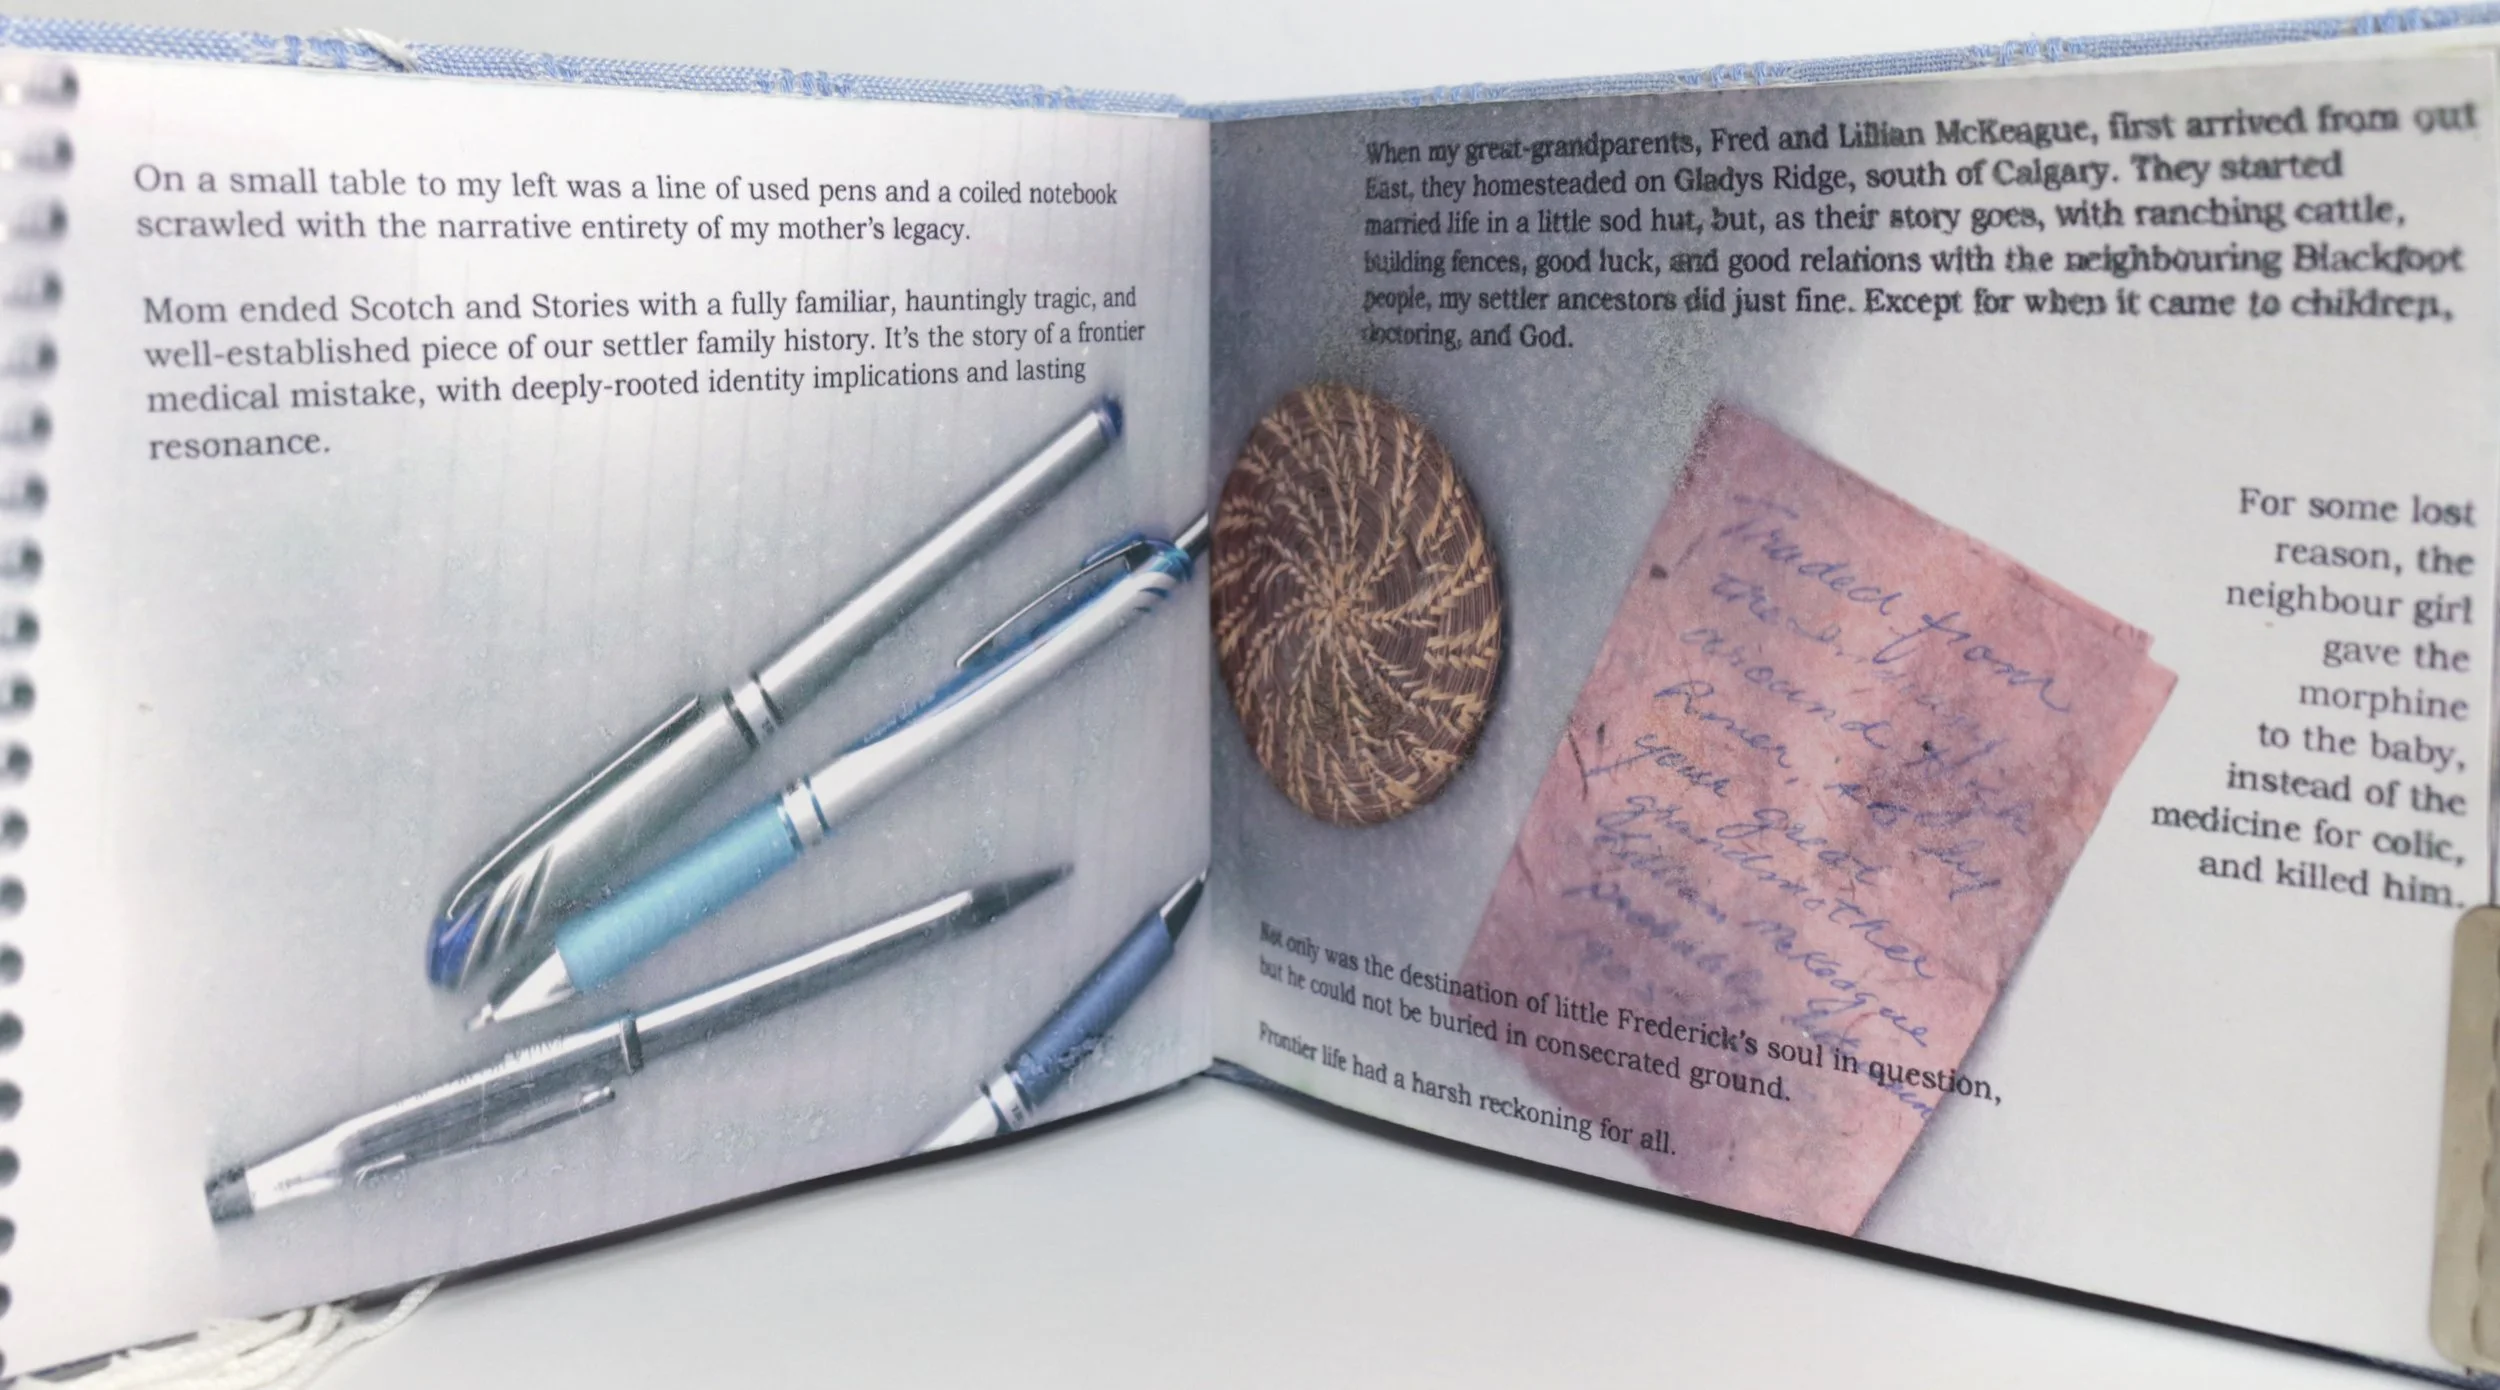 On a small table to my left was a line of used pens and a coiled notebook
scrawled with the narrative entirety of my mother's legacy.
Mom ended Scotch and Stories with a fully familiar, hauntingly tragic, and
well-established piece of our settler family history. It's the story of a frontier
medical mistake, with deeply-rooted identity implications and lasting
resonance.
When my great-grandparents, Fred and Lillian McKeague, first arrived from out
East, they homesteaded on Gladys Ridge, south of Calgary. They started
married life in a little sod hut, but, as their story goes, with ranching cattle,
building fences, good luck, and good relations with the neighbouring Blackfoot
people, my settler ancestors did just fine. Except for when it came to children,
doctoring, and God.
Traded from
the Indians
around
River,
your great
grandmother
Lillian McKeague
For some lost
reason, the
neighbour girl
gave the
morphine
to the baby,
instead of the
medicine for colic,
and killed him.
Not only was the destination of little Frederick's soul in question,
but he could not be buried in consecrated ground.
Frontier life had a harsh reckoning for all.